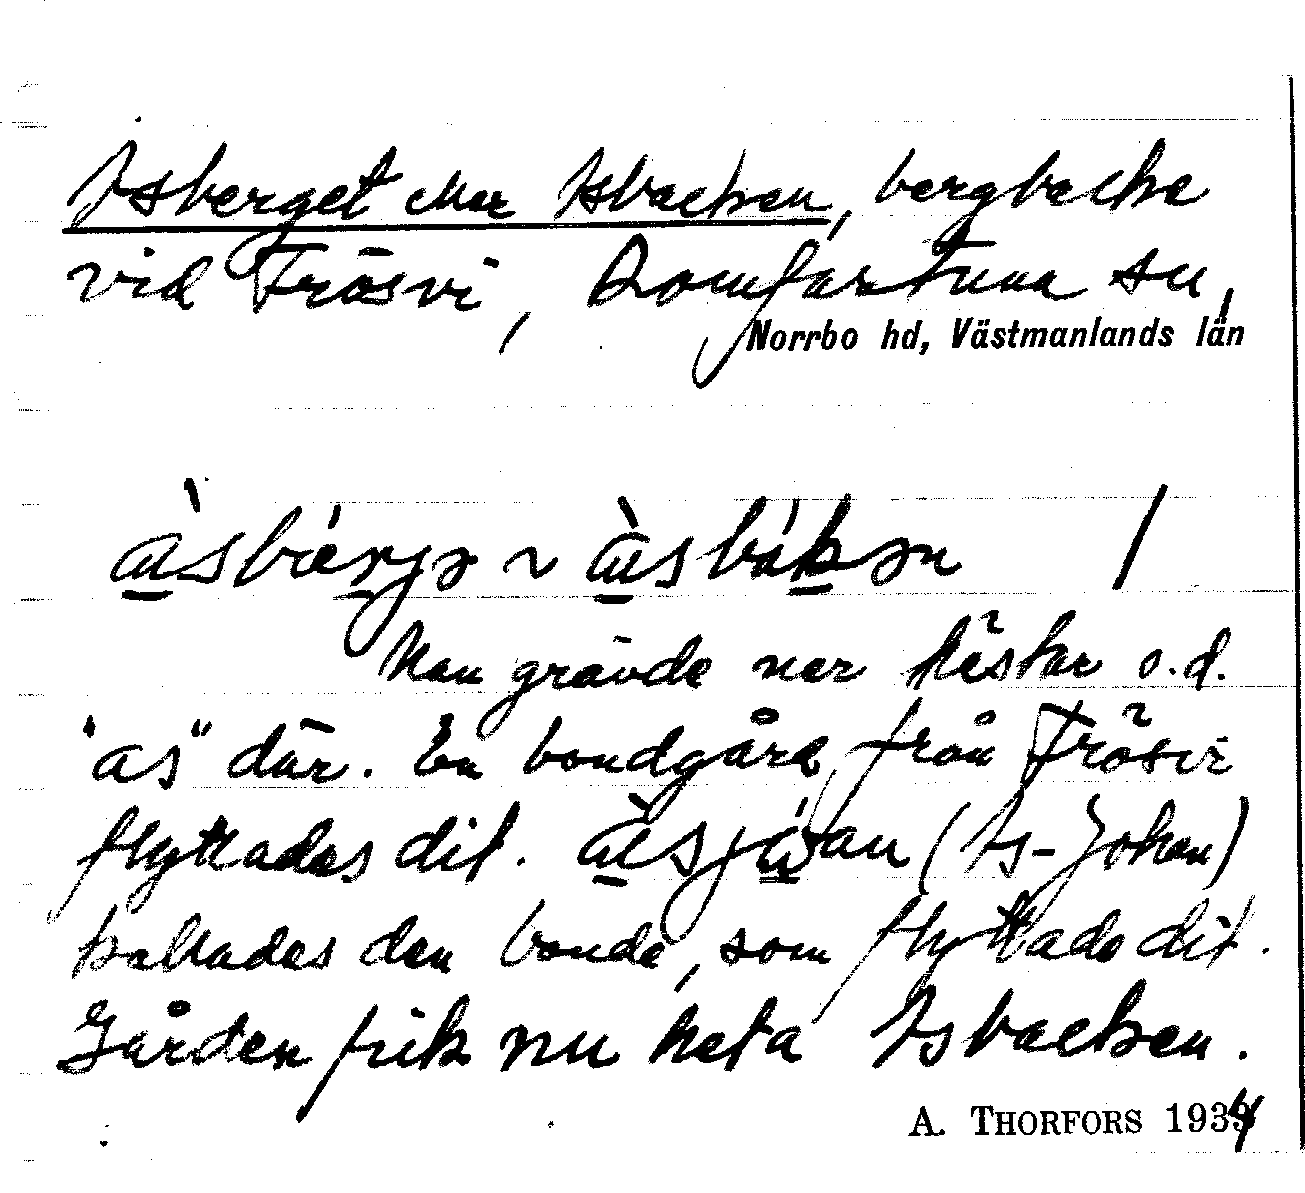 Asberget eller Asbacken, bergbacke
vid Frösvi, Romfartuna sn,
Norrbo hd, Västmanlands län
Man grävde ner hästar o.d.
"as" där. En bondgård från Frösvi
flyttades dit. (As-Johan)
kallades den bonde, som flyttade dit.
Gården fick nu heta Asbacken.
A. THORFORS 1934